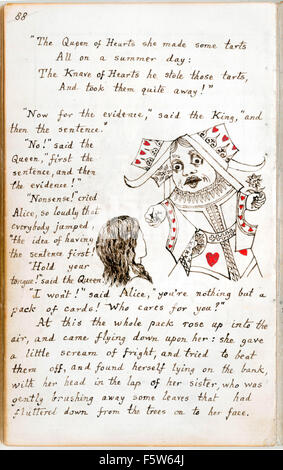 88
"The Queen of Hearts she made some tarts
All on a summer day:
The Knave of Hearts he stole those tarts,
And took them quite away!"
"Now for the evidence," said the King, "and
then the sentence."
"No!" said the
Queen, "first the
sentence, and then
the evidence!"
"Nonsense!" cried
Alice, so loudly that
everybody jumped,
"the idea of having
the sentence first!"
"Hold your
tongue!" said the Queen.
"I won't!" said Alice, "you're nothing but a
pack of cards! Who cares for you?"
At this the whole pack rose up into the
air, and came flying down upon her: she gave
a little scream of fright, and tried to beat
them off, and found herself lying on the bank,
with her head in the lap of her sister, who was
gently brushing away some leaves that had
fluttered down from the trees on to her face.
alamy stock photo
F5W64J